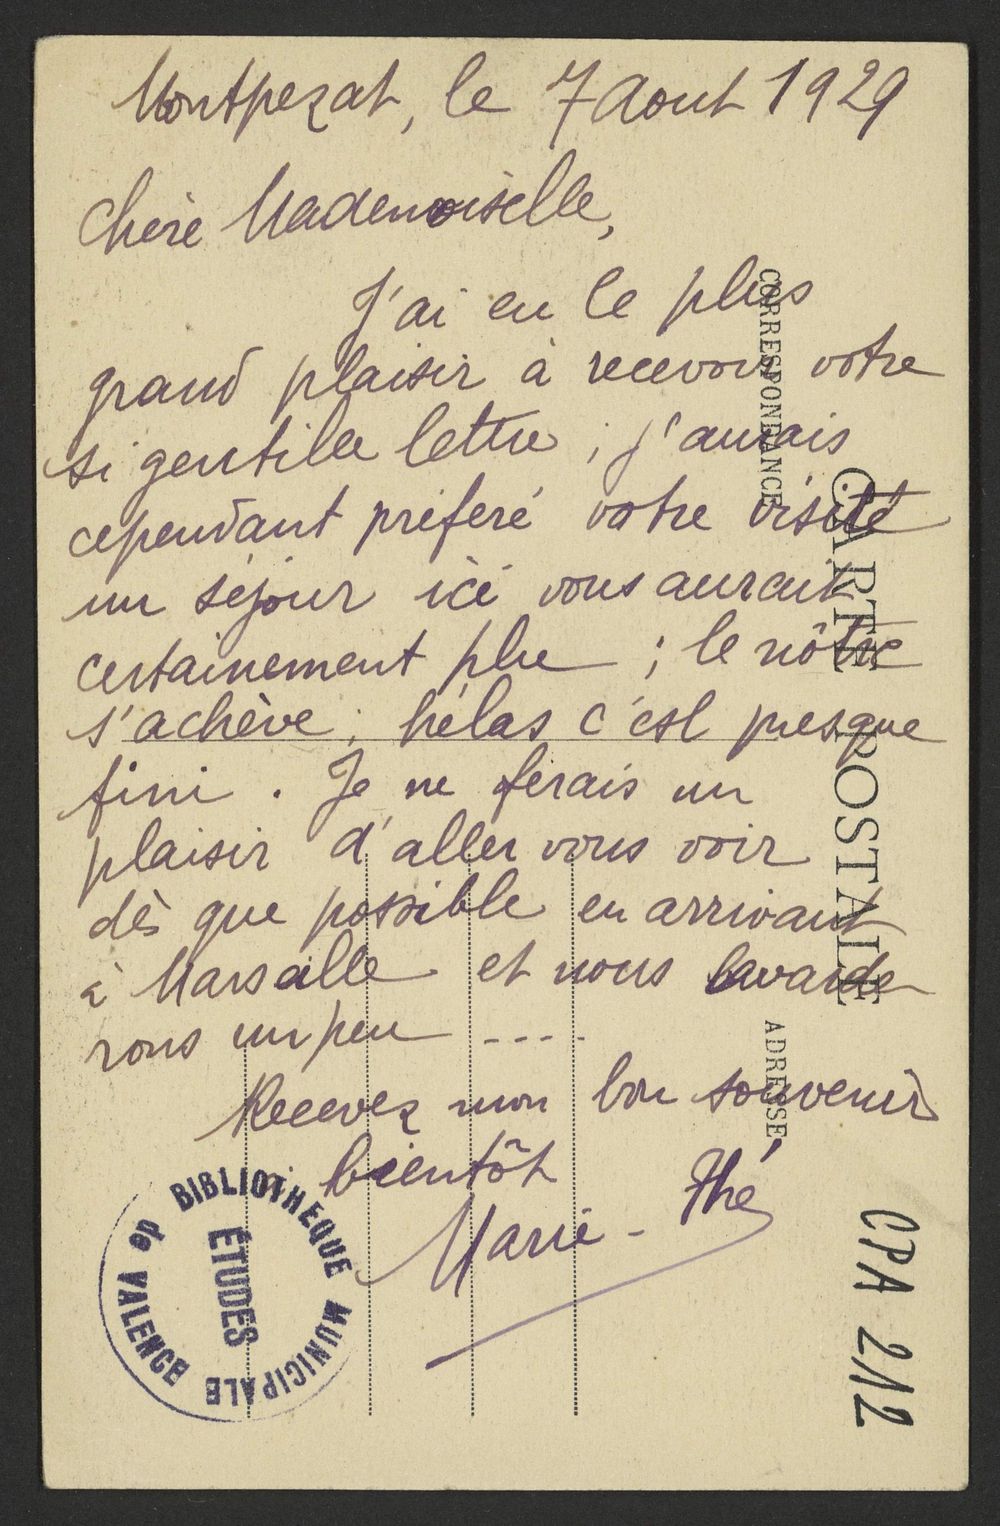 Montpezat, le 7 Aout 1929
Chère Mademoiselle,
J'ai eu le plus
grand plaisir à recevoir votre
si gentille lettre ; j'aurais
cependant préferé votre visite
un séjour ici vous aurait
certainement plu ; le nôtre
s'achève ; hélas c'est presque
fini . Je me ferais un
plaisir d'aller vous voir
dès que possible en arrivant
à Marseille et nous bavarde
rons un peu ....
Recevez mon bon souvenir
à bientôt
Marie-Thé
CORRESPONDANCE
CARTE POSTALE
ADRESSE
CPA 212
BIBLIOTHEQUE MUNICIPALE
de VALENCE
ÉTUDES